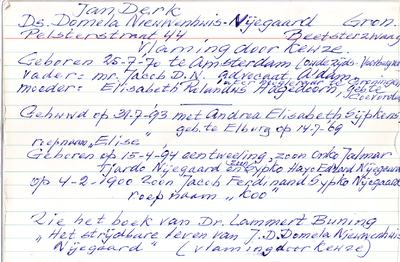 Jan Derk
Ds. Domela Nieuwenhuis-Nijegaard Gron.
Pelsterstraat 44 Beetsterzwaag
Vlaming door keuze.
Geboren 25-7-70 te Amsterdam (oudezijds-Voorburgwal
Vader: mr. Jacob D.N. advocaat A'dam,
later hoogleraar te Groningen
moeder: Elisabeth Rolandus Hagedoorn, geb. te
Coevorden
Gehuwd op 31-7-93 met Andrea Elisabeth Sijpkens,
geb. te Elburg op 14-7-69
roepnaam „Elise”
Geboren op 15-4-94 een tweeling, zoon Onko Jalmar
Fjardo Nijegaard en Sypko Hayo Edzard Nijegaard
op 4-2-1900 zoon Jacob Ferdinand Sypko Nijegaard
roepnaam „Koo”
Zie het boek van Dr. Lammert Buning
„Het strijdbare leven van J.D. Domela Nieuwenhuis
Nijegaard” (vlaming door keuze)